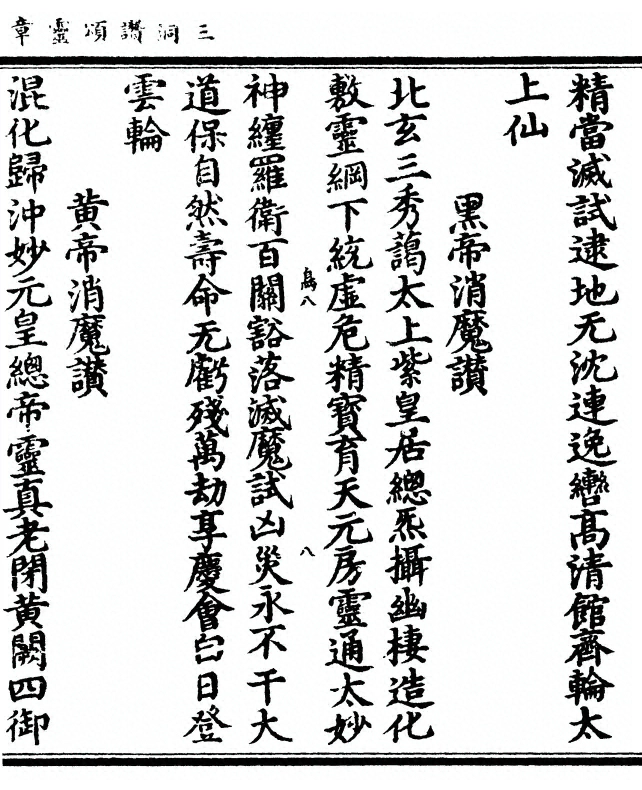 三洞讚頌靈章
精當滅試逮地无沈連逸轡高清館齊輪太
上仙
黑帝消魔讃
北玄三秀藹太上紫皇居總炁攝幽棲造化
敷靈綱下統虛危精寶育天元房靈通太妙
神纏羅衛百關豁落滅魔試凶災永不干大
道保自然壽命无虧殘萬劫享慶會白日登
雲輪
黄帝消魔讃
混化歸沖妙元皇總帝靈真老閉黄闕四御
八
八